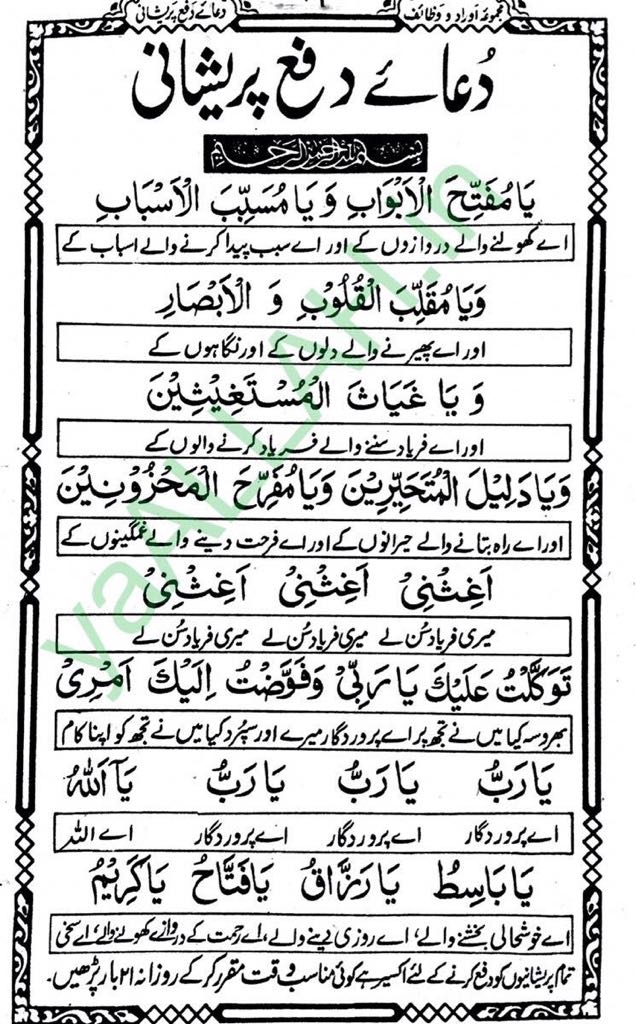 مجموعہ اوراد و وظائف
دعائے دفع پریشانی
دُعائے دفع پریشانی
بسم اللہ الرحمن الرحیم
يَا مُفَتِّحَ الْاَبْوَابِ وَ يَا مُسَبِّبَ الْاَسْبَابِ
اے کھولنے والے دروازوں کے اور اے سبب پیدا کرنے والے اسباب کے
وَيَا مُقَلِّبَ الْقُلُوْبِ وَ الْاَبْصَارِ
اور اے پھیرنے والے دلوں کے اور نگاہوں کے
وَ يَا غِيَاثَ الْمُسْتَغِيْثِيْنَ
اور اے فریاد سننے والے فریاد کرنے والوں کے
وَيَا دَلِيْلَ الْمُتَحَيِّرِيْنَ وَيَا مُفَرِّحَ الْمَحْزُوْنِيْنَ
اور اے راہ بتانے والے حیرانوں کے اور اے فرحت دینے والے غمگینوں کے
اَغِثْنِيْ اَغِثْنِيْ اَغِثْنِيْ
میری فریاد سُن لے میری فریاد سُن لے میری فریاد سُن لے
تَوَكَّلْتُ عَلَيْكَ يَا رَبِّيْ وَفَوَّضْتُ اِلَيْكَ اَمْرِيْ
بھروسہ کیا میں نے تجھ پر اے پروردگار میرے اور سپُرد کیا میں نے تجھ کو اپنا کام
يَا رَبُّ يَا رَبُّ يَا رَبُّ يَآ اَللّٰهُ
اے پروردگار اے پروردگار اے پروردگار اے اللہ
يَا بَاسِطُ يَا رَزَّاقُ يَا فَتَّاحُ يَا كَرِيْمُ
اے خوشحالی بخشنے والے، اے روزی دینے والے، اے رحمت کے دروازے کھولنے والے، اے سخی
تمام پریشانیوں کو دفع کرنے کے لئے اکسیر ہے کوئی مناسب وقت مقرر کر کے روزانہ ۲۱ بار پڑھیں۔
yaALLAH.in